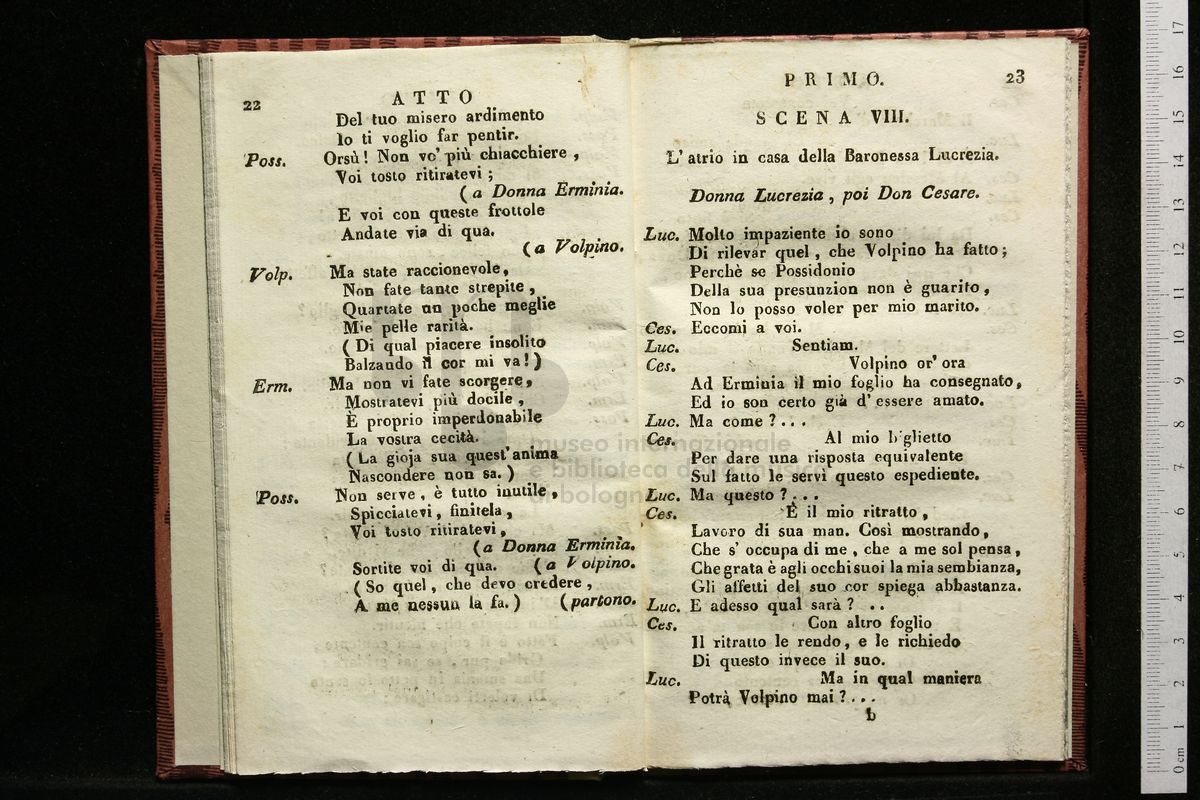 22
ATTO
Del tuo misero ardimento
Io ti voglio far pentir.
Poss. Orsù! Non vo' più chiacchiere ,
Voi tosto ritiratevi ;
( a Donna Erminia.
E voi con queste frottole
Andate via di qua.
( a Volpino.
Volp. Ma state raccionevole,
Non fate tante strepite ,
Quartate un poche meglie
Mie pelle rarità.
( Di qual piacere insolito
Balzando il cor mi va! )
Erm. Ma non vi fate scorgere,
Mostratevi più docile ,
È proprio imperdonabile
La vostra cecità.
( La gioja sua quest' anima
Nascondere non sa. )
Poss. Non serve , è tutto inutile ,
Spicciatevi , finitela ,
Voi tosto ritiratevi,
( a Donna Erminia.
Sortite voi di qua. ( a Volpino.
( So quel , che devo credere ,
A me nessun la fa. ) ( partono.
PRIMO.
23
SCENA VIII.
L' atrio in casa della Baronessa Lucrezia.
Donna Lucrezia , poi Don Cesare.
Luc. Molto impaziente io sono
Di rilevar quel , che Volpino ha fatto ;
Perchè se Possidonio
Della sua presunzion non è guarito ,
Non lo posso voler per mio marito.
Ces. Eccomi a voi.
Luc. Sentiam.
Ces. Volpino or' ora
Ad Erminia il mio foglio ha consegnato,
Ed io son certo già d' essere amato.
Luc. Ma come ? . . .
Ces. Al mio biglietto
Per dare una risposta equivalente
Sul fatto le servì questo espediente.
Luc. Ma questo ? . . .
Ces. È il mio ritratto ,
Lavoro di sua man. Così mostrando,
Che s' occupa di me , che a me sol pensa ,
Che grata è agli occhi suoi la mia sembianza,
Gli affetti del suo cor spiega abbastanza.
Luc. E adesso qual sarà ? . .
Ces. Con altro foglio
Il ritratto le rendo, e le richiedo
Di questo invece il suo.
Luc. Ma in qual maniera
Potrà Volpino mai ? . . .
b
museo internazionale
e biblioteca della musica
di bologna
0 cm 1 2 3 4 5 6 7 8 9 10 11 12 13 14 15 16 17